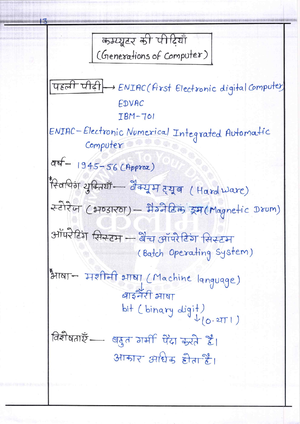 13
कम्प्यूटर की पीढ़ियाँ
(Generations of Computer)
पहली पीढ़ी → ENIAC (First Electronic digital Computer)
EDVAC
IBM-701
ENIAC - Electronic Numerical Integrated Automatic
Computer
वर्ष - 1945-56 (Approx)
स्विचिंग युक्तियाँ — वैक्यूम ट्यूब (Hard Ware)
स्टोरेज (भण्डारण) — मैग्नेटिक ड्रम (Magnetic Drum)
ऑपरेटिंग सिस्टम — बैच ऑपरेटिंग सिस्टम
(Batch Operating System)
भाषा — मशीनी भाषा (Machine language)
बाइनेरी भाषा
bit (binary digit)
↳ (0 या 1)
विशेषताएँ — बहुत गर्मी पैदा करते है।
आकार अधिक होता है।